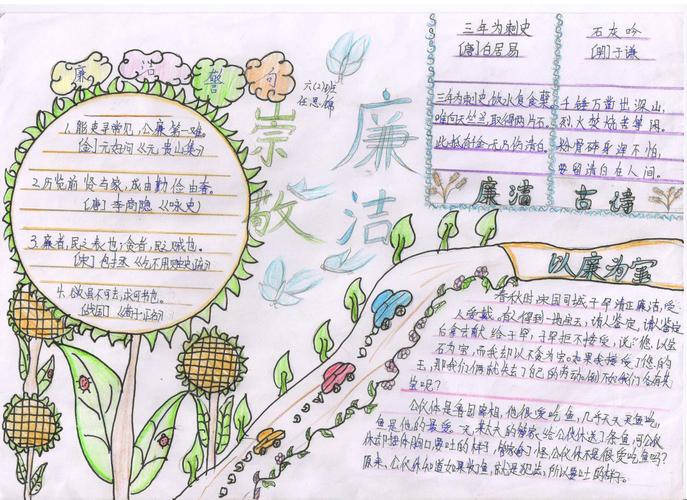 廉洁警句
六(2)班
任思锦
崇敬
廉洁
1.能吏寻常见,公廉第一难。
[金]元好问《元贵山集》
2.历览前贤与家,成由勤俭由奢。
[唐]李商隐《咏史》
3.廉者,民之表也;贪者,民之贼也。
[宋]包拯《乞不用赃吏疏》
4.欲虽不可去,求可节也。
[战国]《荀子·正名》
三年为刺史
[唐]白居易
三年为刺史,饮水复食蘖。
唯向天竺山,取得两片石。
此抵千金,无乃伤清白。
石灰吟
[明]于谦
千锤万凿出深山,
烈火焚烧若等闲。
粉骨碎身浑不怕,
要留清白在人间。
廉洁古诗
以廉为宝
春秋时,宋国司城子罕清正廉洁,受
人爱戴。有人得到一块宝玉,请人鉴定,请人鉴定
白拿去献给子罕,子罕拒不接受,说:您以宝
石为宝,而我却以不贪为宝。如果我接受了您的
玉,那我们俩就失去了自己的
宝呢?
公仪休是鲁国宰相,他很爱吃鱼,几乎天天买鱼吃,
鱼是他的最爱。一天,某大夫的管家,给公仪休送了条鱼,可公仪
休却捂住胸口要吐的样子,管家奇怪公仪休不是很爱吃鱼吗?
原来,公仪休知道如果收鱼,就是犯法,所以要吐的样子。